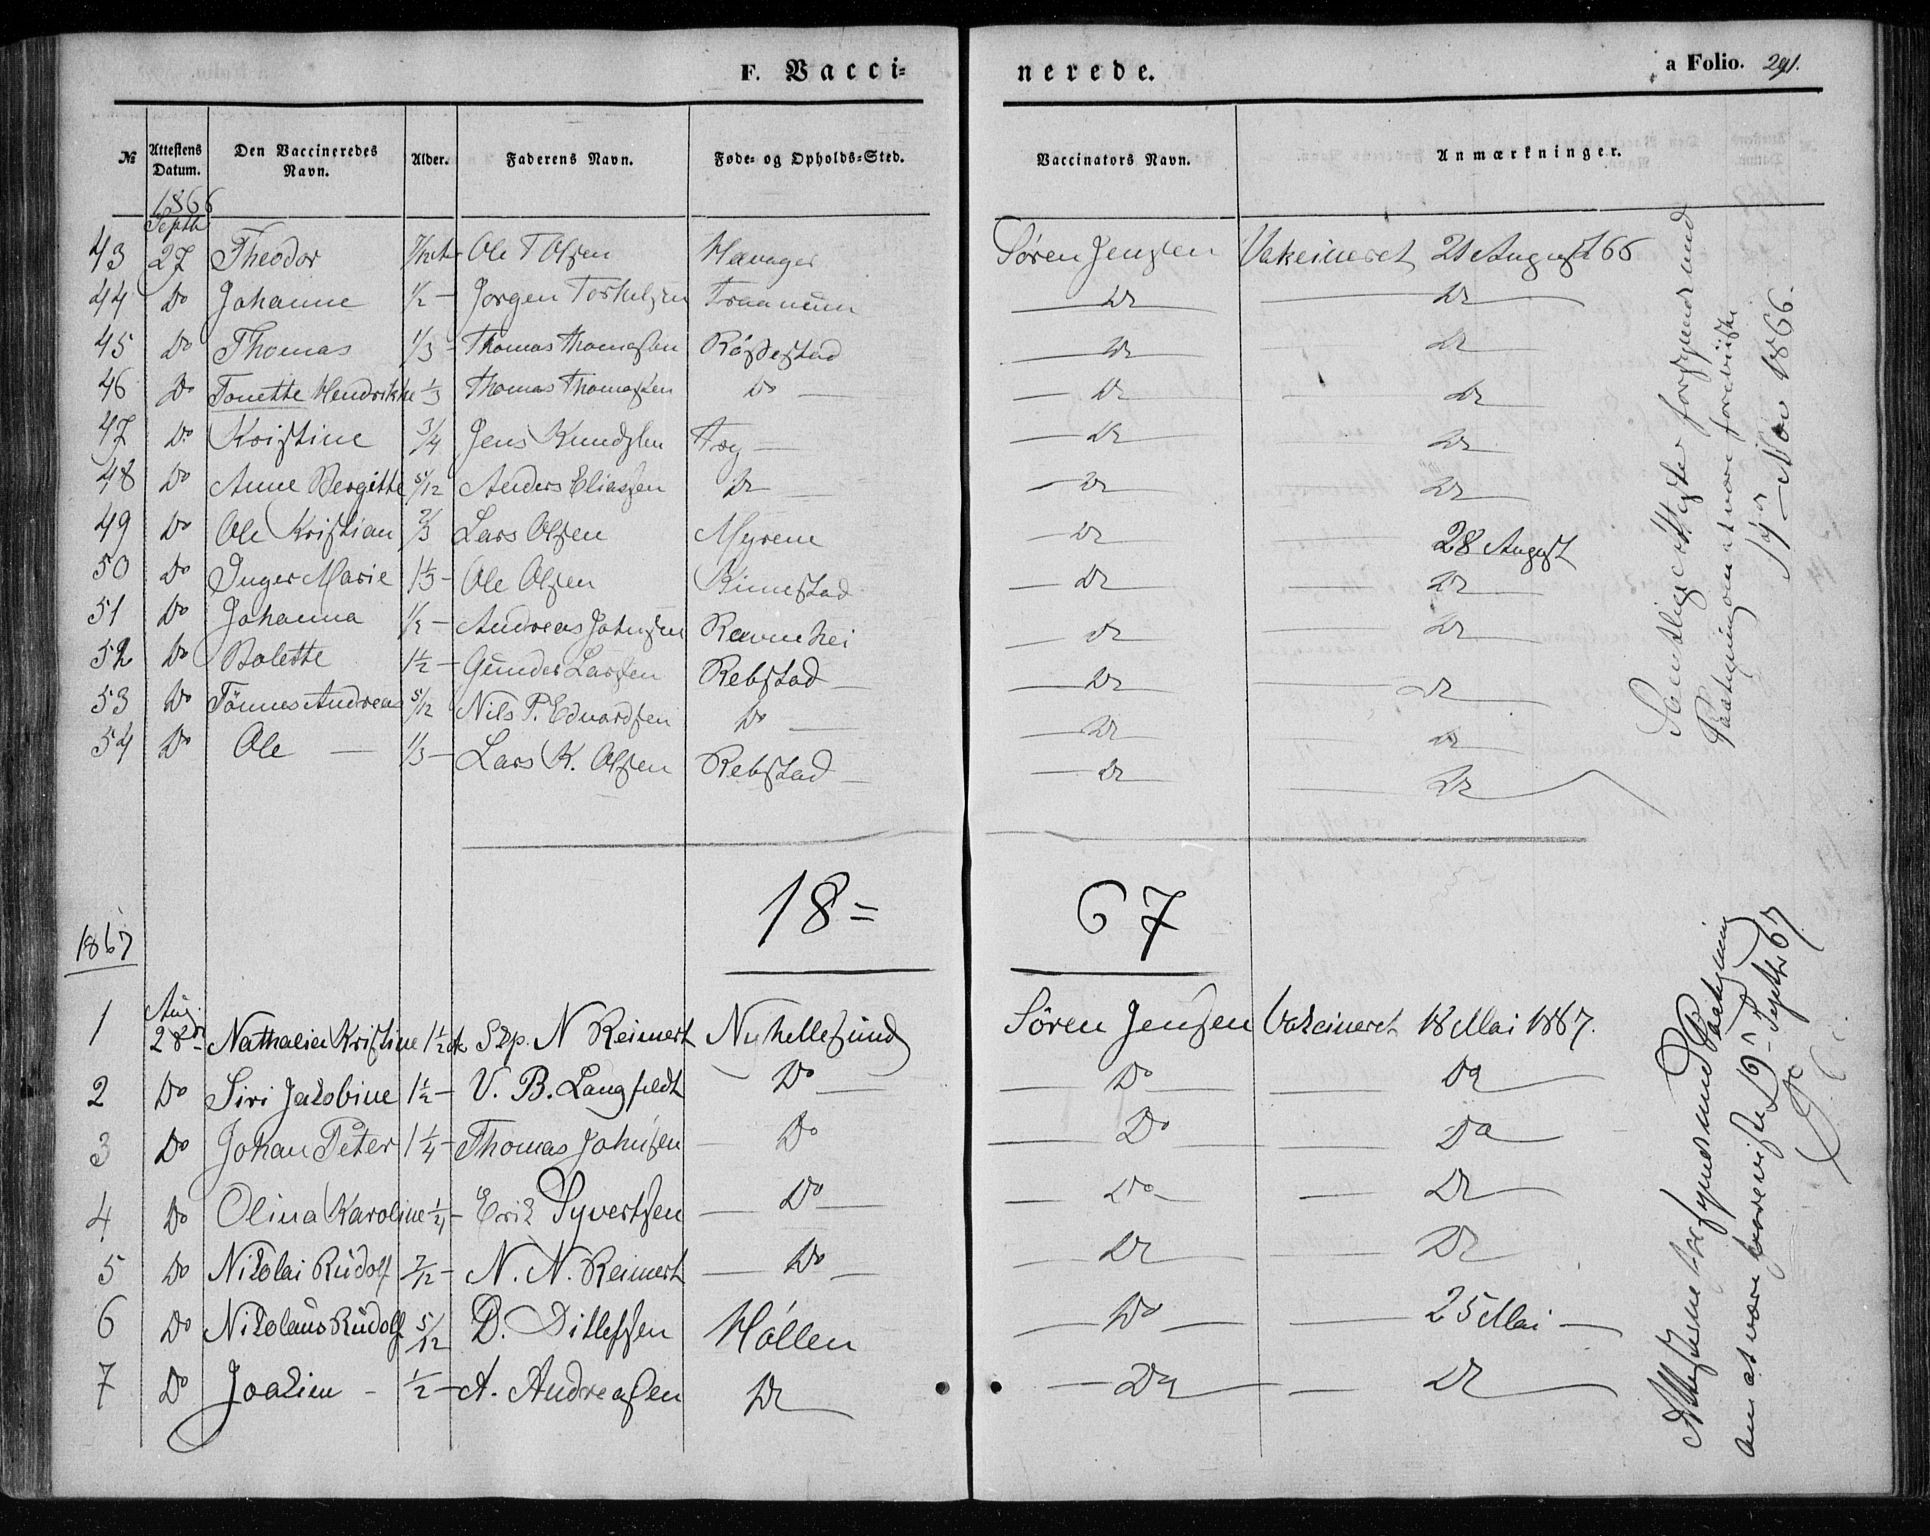 F. Vacci-
nerede.
a Folio. 291.
№ Attestens Datum. Den Vaccineredes Navn. Alder. Faderens Navn. Føde- og Opholds-Sted. Vaccinators Navn. Anmærkninger.
1866
Septbr
43 27 Theodor 7/12 A Ole T Olsen Søren Jensen Vakcineret 21 August 66
44 Do Johanne 1/2 - Jørgen Torkelsen Traanum Do Do
45 Do Thomas 1/3 - Thomas Thomasen Røsestad Do Do
46 Do Tonette Hendrikke 1/3 Thomas Thomassen Do Do Do
47 Do Kristine 3/4 Jens Knudsen Try Do Do
48 Do Anne Bergitte 5/12 Anders Eliassen Do Do Do
49 Do Ole Kristian 2/3 Lars Olsen Myrene Do 28 August
50 Do Inger Marie 1 1/3 - Ole Olsen Kimestad Do Do
51 Do Johanna 1/2 - Andreas Johnsen Ravnehei Do Do
52 Do Bolette 1 1/2 - Gunder Larsen Rebstad Do Do
53 Do Tönnes Andreas 5/12 Nils P. Edvardsen Do Do Do
54 Do Ole 1/3 - Lars K. Olsen Rebstad Do Do
Samtlige Attester forsynede med
Paategning om at være foreviiste
Nov 1866.
18= 67
1867
1 Aug. 28de Nathalia Kristine 1 1/2 A Sep. N Reimert Ny hellesund Søren Jensen Vakcineret 18 Mai 1867.
2 Do Siri Jakobine 1 1/2 - V. B. Langfeldt Do Do Do
3 Do Johan Peter 1 1/4 - Thomas Johnsen Do Do Do
4 Do Olina Karoline 1/4 - Erik Syvertsen Do Do Do
5 Do Nikolai Rudolf 7/12 - N. N. Reimert Do Do Do
6 Do Nikolaus Rudolf 5/12 D. Ditlefsen Høllen Do 25 Mai
7 Do Joakim - 1/2 - A. Andreasen Do Do Do
Attesterne forsynede med Paategning
om at være foreviste 19 Septbr 67